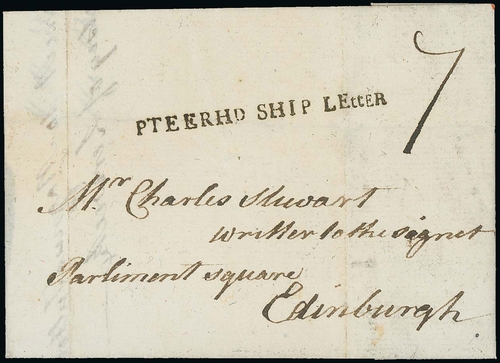 7
PTEERHD SHIP LEttER
Mr. Charles Stewart
writter to the signet
Parliment square
Edinburgh.